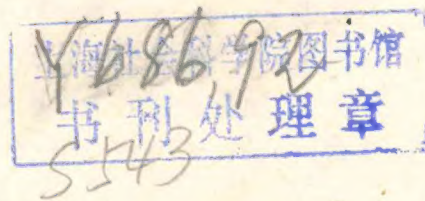 上海社会科学院图书馆
书刊处理章
Y686.92
S543